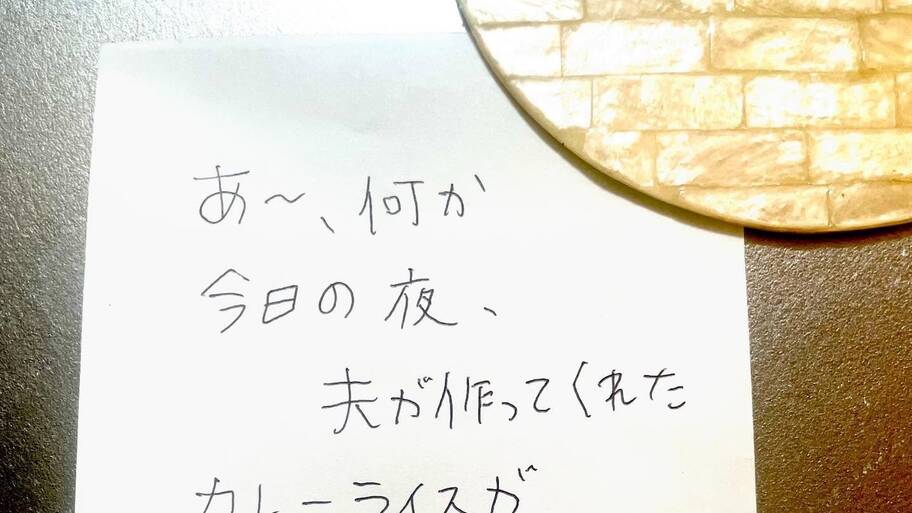 あ〜、何か
今日の夜、
夫が作ってくれた
カレーライスが